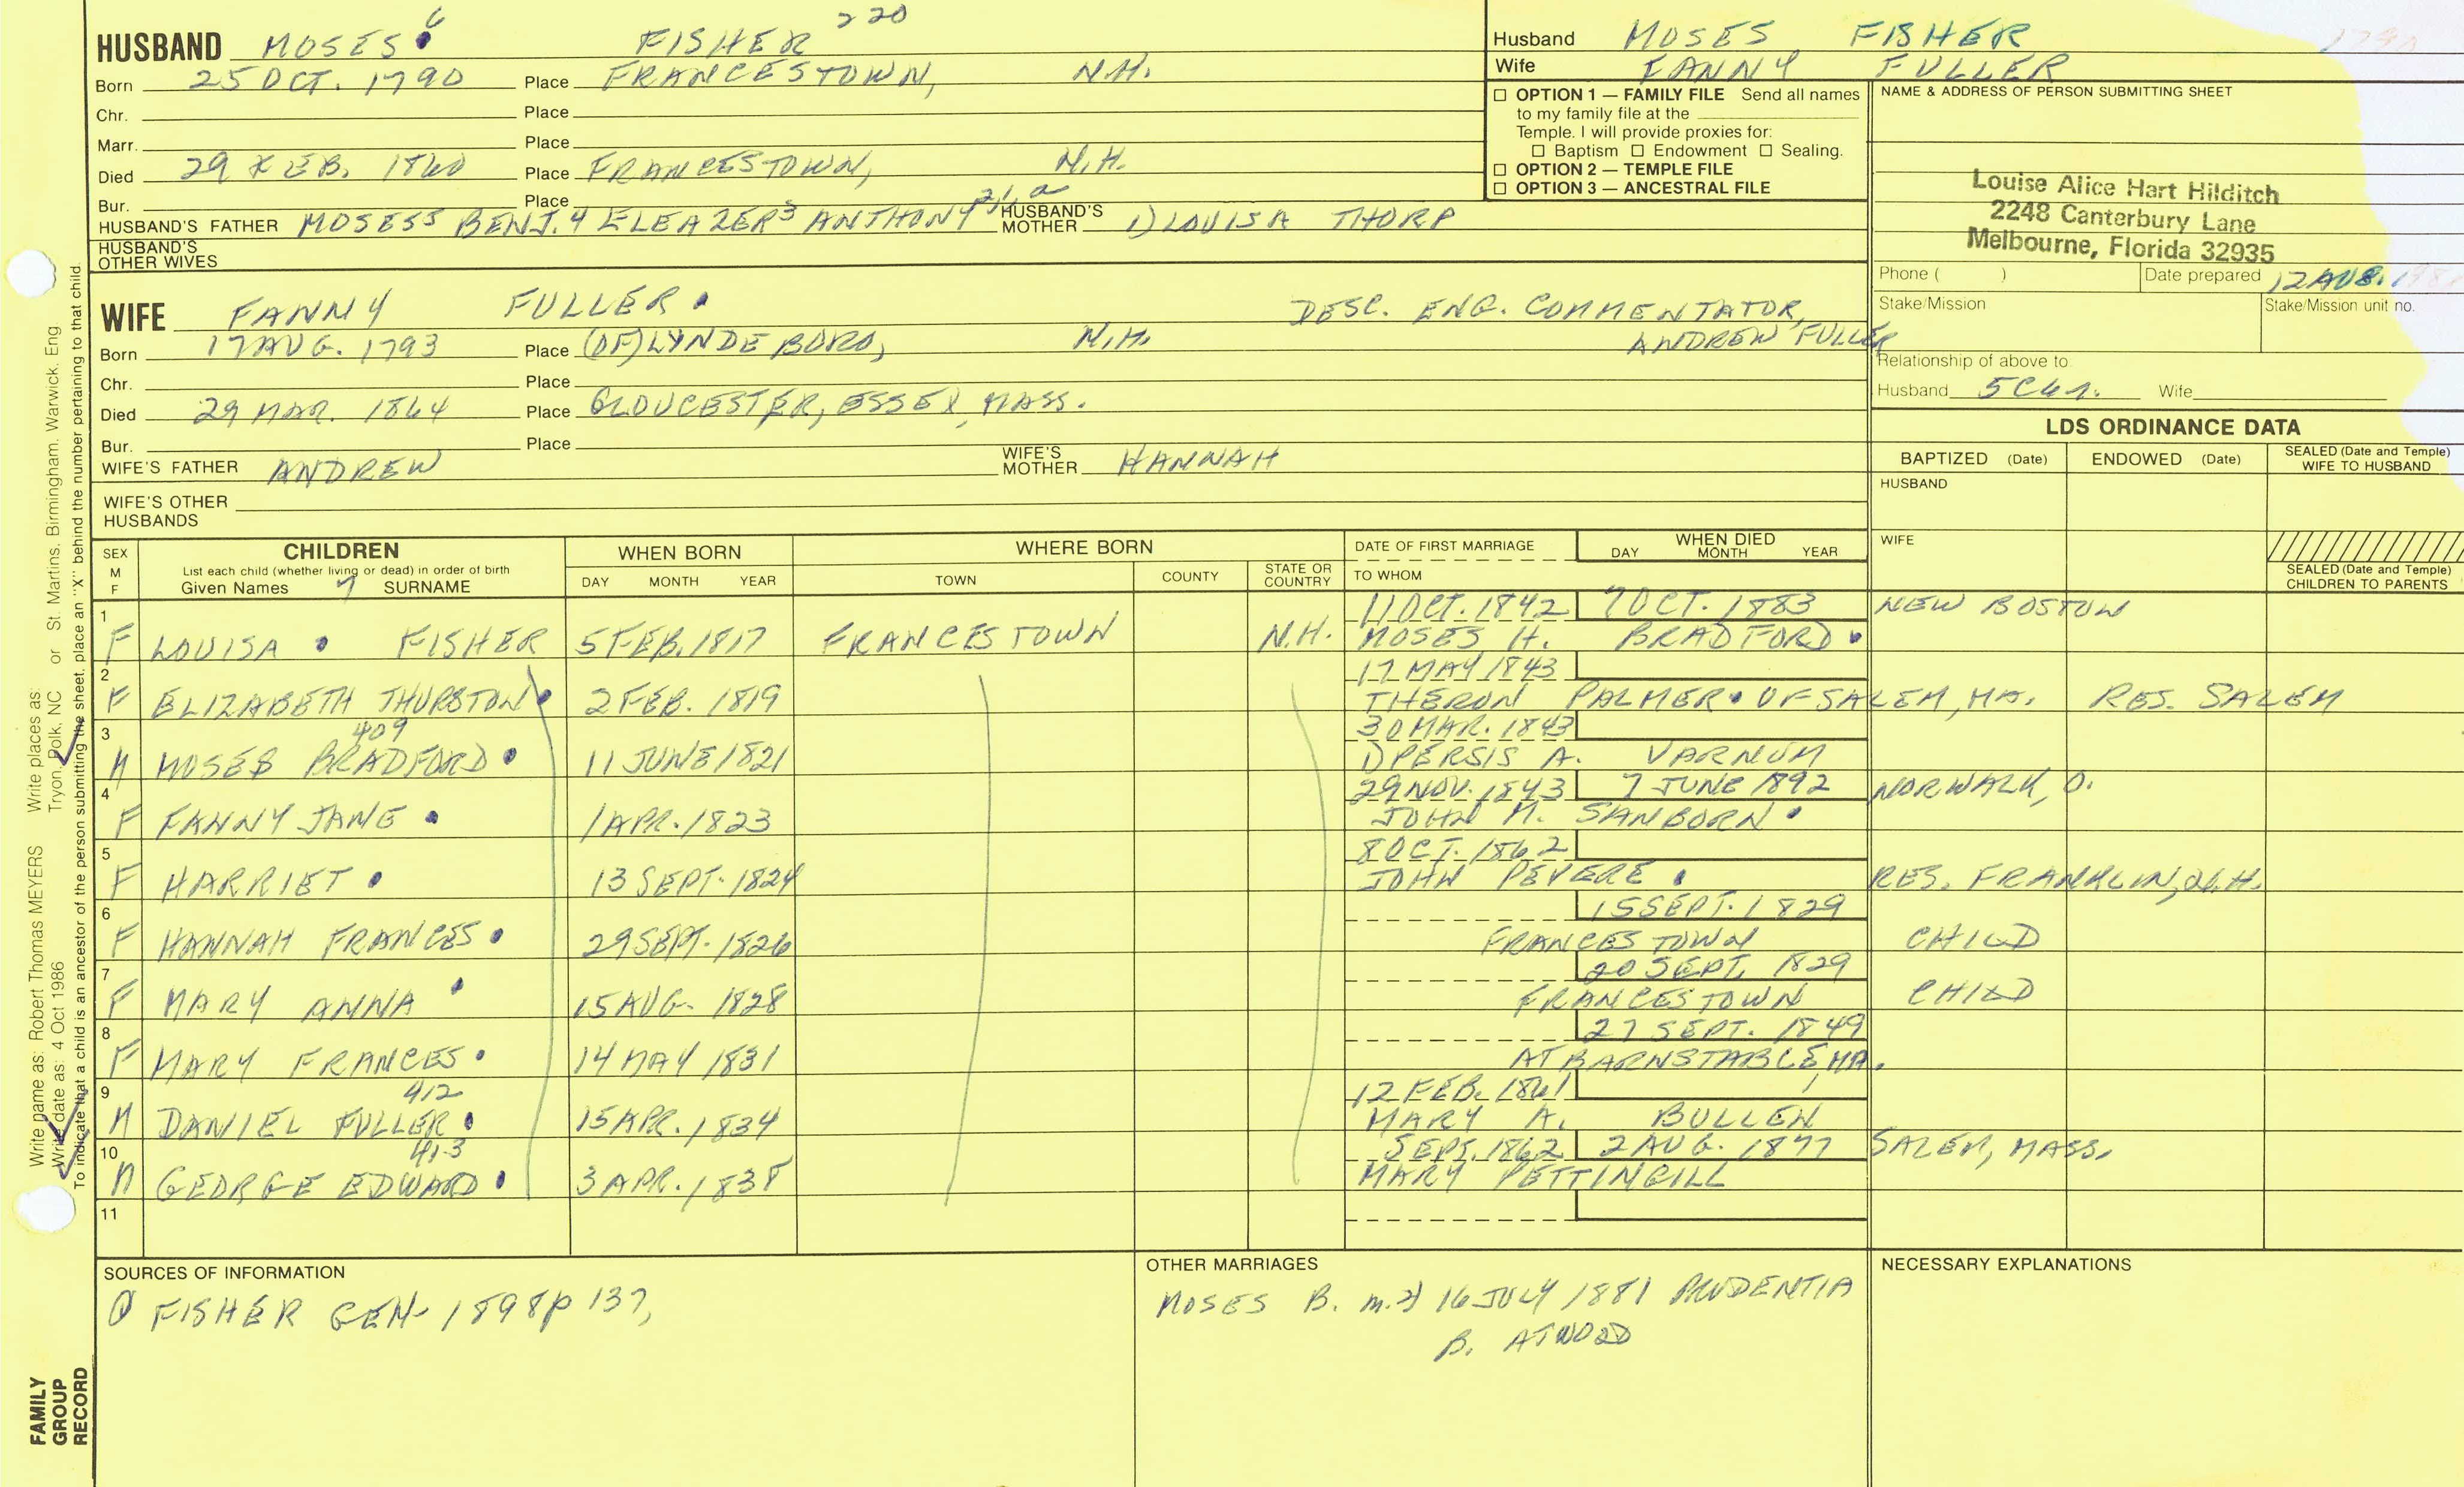 HUSBAND MOSES 6 FISHER 220
Born 25 OCT. 1790 Place FRANCESTOWN, N.H.
Chr. Place
Marr. Place
Died 29 FEB. 1860 Place FRANCESTOWN, N.H.
Bur. Place
HUSBAND'S FATHER MOSES5 BENJ.4 ELEAZER3 ANTHONY 2,1,a HUSBAND'S MOTHER 1) LOUISA THORP
HUSBAND'S OTHER WIVES
WIFE FANNY FULLER DESC. ENG. COMMENTATOR, ANDREW FULLER
Born 17 AUG. 1793 Place (OF) LYNDEBORO, N.H.
Chr. Place
Died 29 MAR. 1864 Place GLOUCESTER, ESSEX, MASS.
Bur. Place
WIFE'S FATHER ANDREW WIFE'S MOTHER HANNAH
WIFE'S OTHER HUSBANDS
Husband MOSES FISHER 1790
Wife FANNY FULLER
OPTION 1 — FAMILY FILE Send all names
to my family file at the
Temple. I will provide proxies for:
Baptism Endowment Sealing.
OPTION 2 — TEMPLE FILE
OPTION 3 — ANCESTRAL FILE
NAME & ADDRESS OF PERSON SUBMITTING SHEET
Louise Alice Hart Hilditch
2248 Canterbury Lane
Melbourne, Florida 32935
Phone ( ) Date prepared 12 AUG.
Stake/Mission Stake/Mission unit no.
Relationship of above to
Husband 5C4r. Wife
LDS ORDINANCE DATA
BAPTIZED (Date) ENDOWED (Date) SEALED (Date and Temple) WIFE TO HUSBAND
HUSBAND
WIFE
SEALED (Date and Temple) CHILDREN TO PARENTS
SEX M F
CHILDREN
List each child (whether living or dead) in order of birth
Given Names 7 SURNAME
WHEN BORN
DAY MONTH YEAR
WHERE BORN
TOWN COUNTY STATE OR COUNTRY
DATE OF FIRST MARRIAGE
TO WHOM
WHEN DIED
DAY MONTH YEAR
1 11 OCT. 1842 7 OCT. 1883 NEW BOSTON
F LOUISA FISHER 5 FEB. 1817 FRANCESTOWN N.H. MOSES H. BRADFORD
2 17 MAY 1843
F ELIZABETH THURSTON 2 FEB. 1819 THERON PALMER OF SALEM, MA. RES. SALEM
3 409 30 MAR. 1843
M MOSES BRADFORD 11 JUNE 1821 1) PERSIS A. VARNUM
4 29 NOV. 1843 7 JUNE 1892 NORWALK, O.
F FANNY JANE 1 APR. 1823 JOHN M. SANBORN
5 8 OCT. 1862
F HARRIET 13 SEPT. 1824 JOHN PEVERE RES. FRANKLIN, N.H.
6 15 SEPT. 1829
F HANNAH FRANCES 29 SEPT. 1826 FRANCESTOWN CHILD
7 20 SEPT. 1829
F MARY ANNA 15 AUG. 1828 FRANCESTOWN CHILD
8 27 SEPT. 1849
F MARY FRANCES 14 MAY 1831 AT BARNSTABLE, MA.
9 412 12 FEB. 1861
M DANIEL FULLER 15 APR. 1834 MARY A. BULLEN
10 413 SEPT. 1862 2 AUG. 1877 SALEM, MASS.
M GEORGE EDWARD 3 APR. 1838 MARY PETTINGILL
11
SOURCES OF INFORMATION
FISHER GEN. 1898 p 137,
OTHER MARRIAGES
MOSES B. m. 2) 16 JULY 1881 PRUDENTIA
B. ATWOOD
NECESSARY EXPLANATIONS
Write name as: Robert Thomas MEYERS Write places as: St. Martins, Birmingham, Warwick, Eng
Write date as: 4 Oct 1986 Tryon, Polk, NC or
To indicate that a child is an ancestor of the person submitting the sheet, place an "X" behind the number pertaining to that child.
FAMILY
GROUP
RECORD